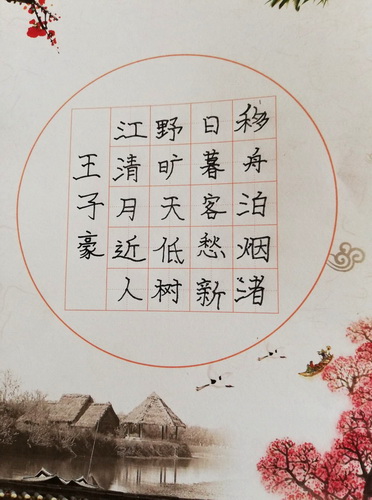 移舟泊烟渚
日暮客愁新
野旷天低树
江清月近人
王子豪